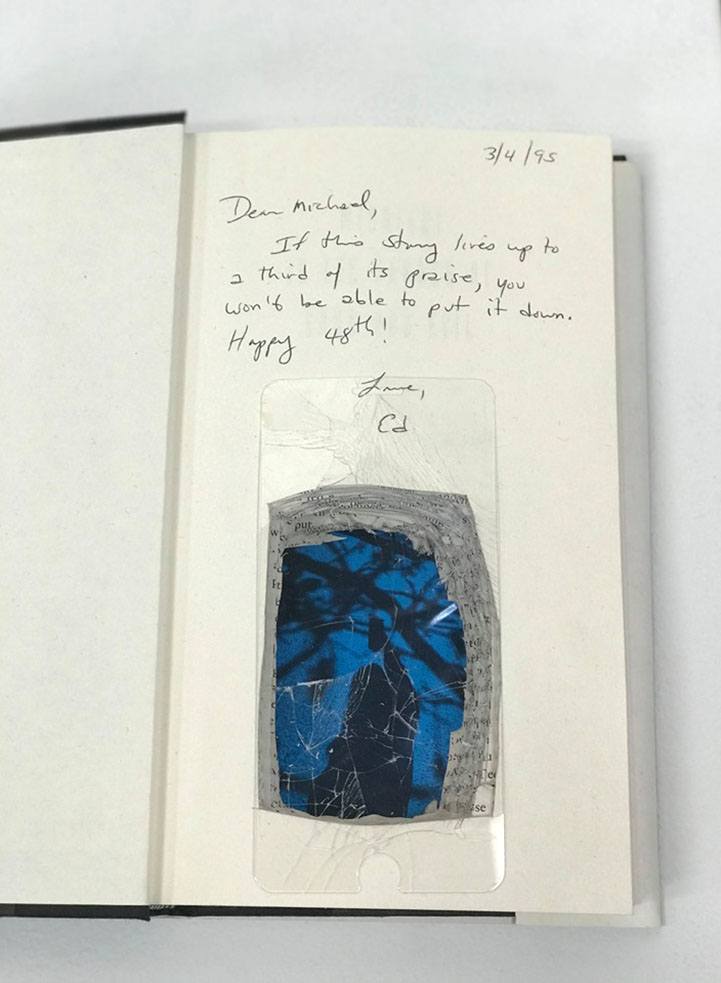 3/4/95
Dear Michael,
If this story lives up to
a third of its praise, you
won't be able to put it down.
Happy 48th!
Love,
Ed
put
ise